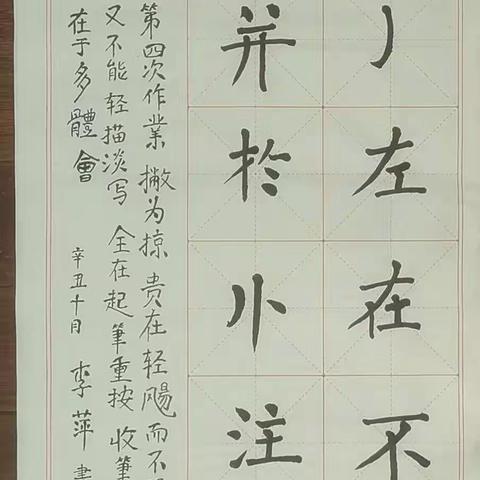 丿左在不
并於小注
第四次作業 撇为掠 贵在轻飏而不
又不能轻描淡写 全在起筆重按 收筆
在于多體會
辛丑十月 李萍 書